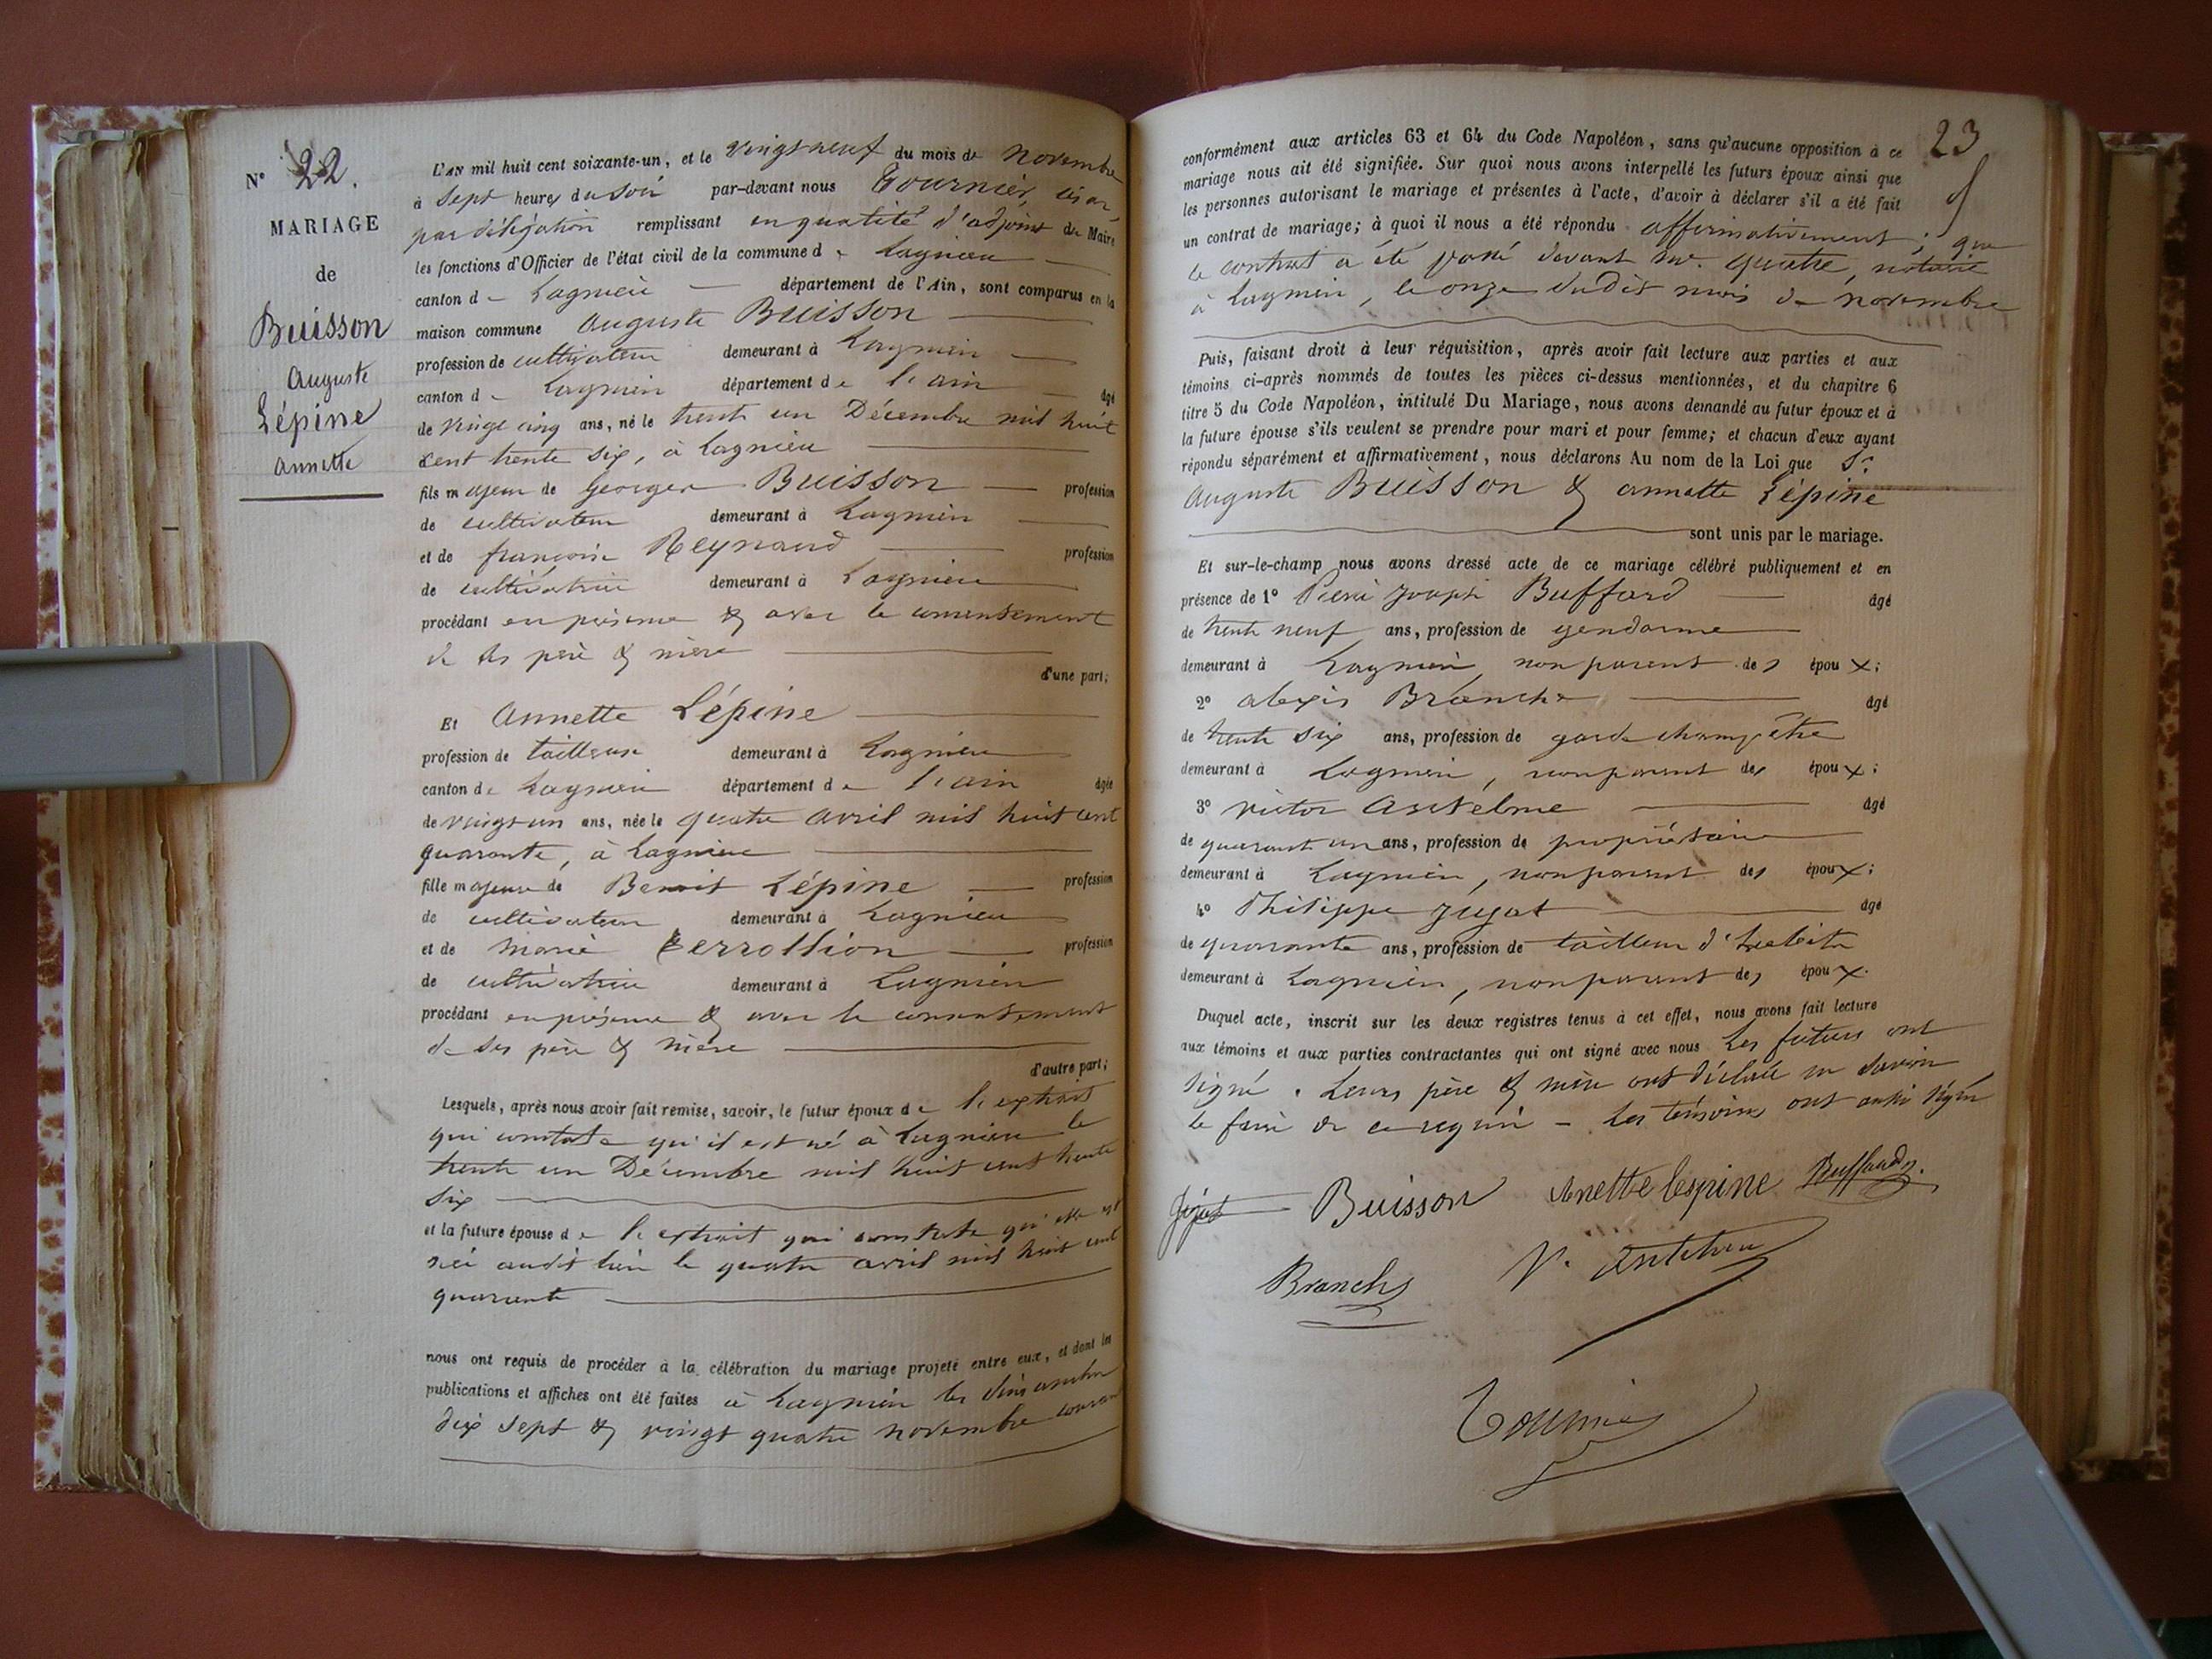 N° 22.
MARIAGE
de
Buisson
Auguste
Lépine
annette
L'AN mil huit cent soixante-un, et le vingt neuf du mois de novembre
à sept heures du soir par-devant nous Tournier, César,
par délégation remplissant en qualité d'adjoint du Maire
les fonctions d'Officier de l'état civil de la commune de Lagnieu
canton de Lagnieu département de l'Ain, sont comparus en la
maison commune Auguste Buisson
profession de cultivateur demeurant à Lagnieu
canton de Lagnieu département de l'ain âgé
de vingt cinq ans, né le trente un Décembre mil huit
cent trente six, à Lagnieu
fils majeur de Georges Buisson profession
de cultivateur demeurant à Lagnieu
et de françoise Reynaud profession
de cultivatrice demeurant à Lagnieu
procédant en présence & avec le consentement
de ses père & mère
d'une part;
Et Annette Lépine
profession de tailleuse demeurant à Lagnieu
canton de Lagnieu département de l'ain âgée
de vingt un ans, née le quatre avril mil huit cent
quarante, à Lagnieu
fille majeure de Benoit Lépine profession
de cultivateur demeurant à Lagnieu
et de marie Perrollion profession
de cultivatrice demeurant à Lagnieu
procédant en présence & avec le consentement
de ses père & mère
d'autre part;
Lesquels, après nous avoir fait remise, savoir, le futur époux de l'extrait
qui constate qu'il est né à Lagnieu le
trente un Décembre mil huit cent trente
six
et la future épouse de l'extrait qui constate qu'elle est
née audit lieu le quatre avril mil huit cent
quarante
nous ont requis de procéder à la célébration du mariage projeté entre eux, et dont les
publications et affiches ont été faites à Lagnieu les dimanches
dix sept & vingt quatre novembre courant
23
conformément aux articles 63 et 64 du Code Napoléon, sans qu'aucune opposition à ce
mariage nous ait été signifiée. Sur quoi nous avons interpellé les futurs époux ainsi que
les personnes autorisant le mariage et présentes à l'acte, d'avoir à déclarer s'il a été fait
un contrat de mariage; à quoi il nous a été répondu affirmativement; que
le contrat a été passé devant Me. quatre, notaire
à Lagnieu, le onze dudit mois de novembre
Puis, faisant droit à leur réquisition, après avoir fait lecture aux parties et aux
témoins ci-après nommés de toutes les pièces ci-dessus mentionnées, et du chapitre 6
titre 5 du Code Napoléon, intitulé Du Mariage, nous avons demandé au futur époux et à
la future épouse s'ils veulent se prendre pour mari et pour femme; et chacun d'eux ayant
répondu séparément et affirmativement, nous déclarons Au nom de la Loi que Sr.
Auguste Buisson & annette Lépine
sont unis par le mariage.
Et sur-le-champ nous avons dressé acte de ce mariage célébré publiquement et en
présence de 1° Pierre Joseph Buffard âgé
de trente neuf ans, profession de gendarme
demeurant à Lagnieu non parent des époux;
2° alexis Branche âgé
de trente six ans, profession de garde champêtre
demeurant à Lagnieu, non parent des époux;
3° victor Antelme âgé
de quarante un ans, profession de propriétaire
demeurant à Lagnieu, non parent des époux;
4° Philippe Jugat âgé
de quarante ans, profession de tailleur d'habits
demeurant à Lagnieu, non parent des époux.
Duquel acte, inscrit sur les deux registres tenus à cet effet, nous avons fait lecture
aux témoins et aux parties contractantes qui ont signé avec nous Les futurs ont
signé. Leurs père & mère ont déclaré ne savoir
le faire de ce requis - Les témoins ont aussi signé
Buisson Anette lespine Buffard
Branche V. Antelme
Tournier